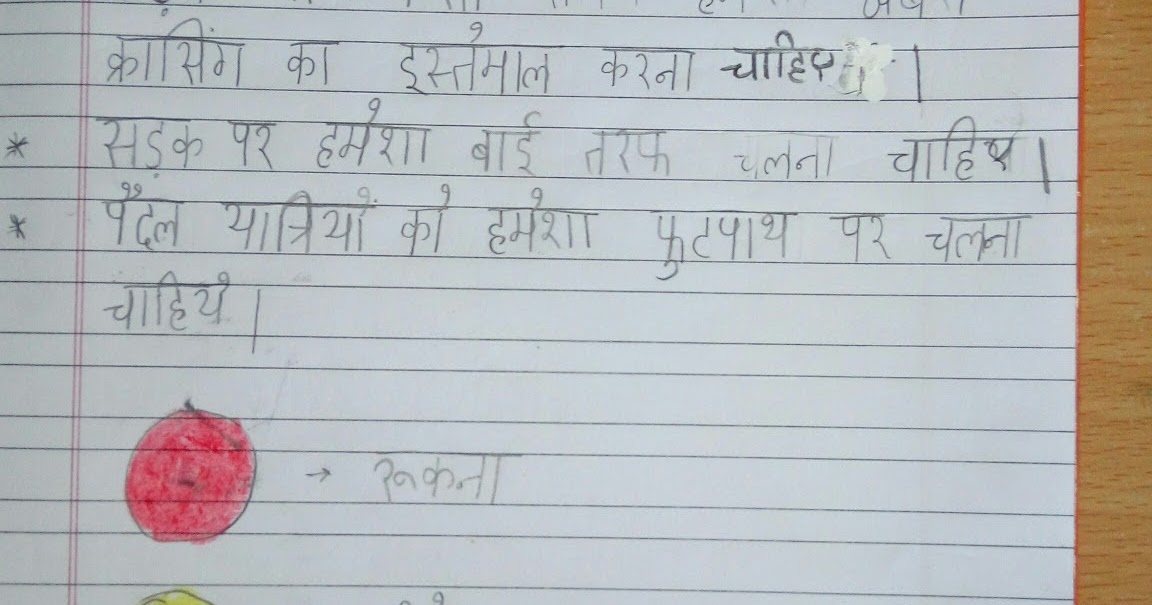 क्रासिंग का इस्तेमाल करना चाहिए |
* सड़क पर हमेशा बाई तरफ चलना चाहिए |
* पैदल यात्रियों को हमेशा फुटपाथ पर चलना
चाहिये |
→ रूकना